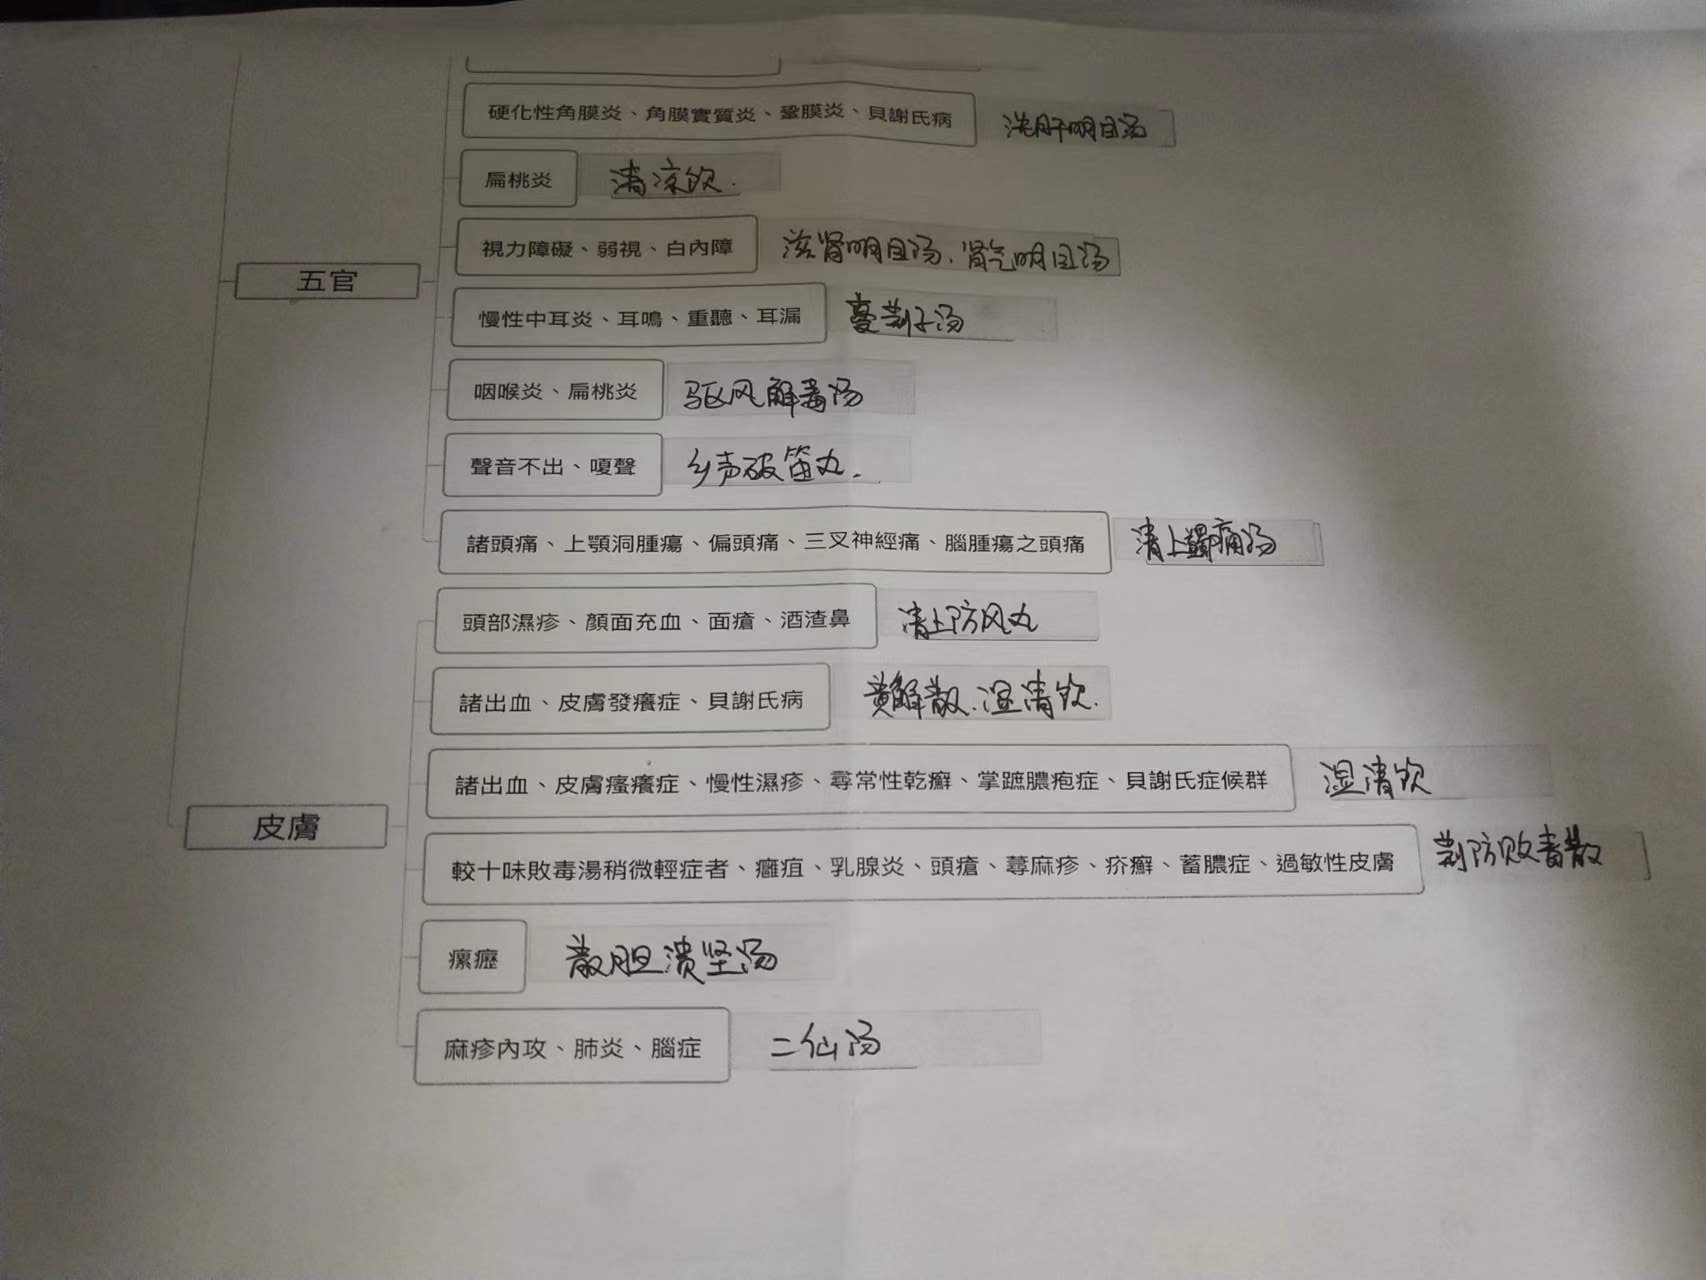 硬化性角膜炎、角膜實質炎、鞏膜炎、貝謝氏病 洗肝明目汤
扁桃炎 清凉饮.
視力障礙、弱視、白內障 滋肾明目汤、肾气明目汤
五官
慢性中耳炎、耳鳴、重聽、耳漏 蔓荆子汤
咽喉炎、扁桃炎 驱风解毒汤
聲音不出、嗄聲 乡声破笛丸.
諸頭痛、上顎洞腫瘍、偏頭痛、三叉神經痛、腦腫瘍之頭痛 清上蠲痛汤
頭部濕疹、顏面充血、面瘡、酒渣鼻 清上防风丸
諸出血、皮膚發癢症、貝謝氏病 黄解散.温清饮.
諸出血、皮膚瘙癢症、慢性濕疹、尋常性乾癬、掌蹠膿疱症、貝謝氏症候群 温清饮
皮膚
較十味敗毒湯稍微輕症者、癰疽、乳腺炎、頭瘡、蕁麻疹、疥癬、蓄膿症、過敏性皮膚 荆防败毒散
瘰癧 散胆溃坚汤
麻疹內攻、肺炎、腦症 二仙汤